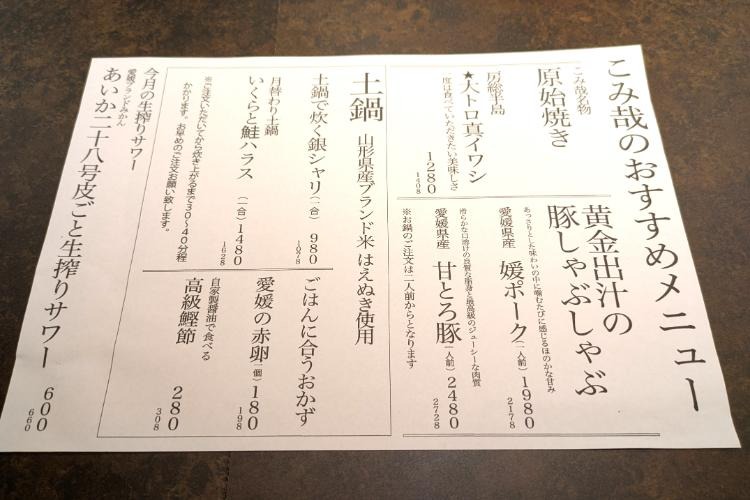 こみ哉のおすすめメニュー
こみ哉名物
原始焼き
房総半島
★大トロ真イワシ
一度は食べていただきたい美味しさ
1280
1408
黄金出汁の
豚しゃぶしゃぶ
あっさりとした味わいの中に噛むたびに感じるほのかな甘み
愛媛県産 媛ポーク(一人前)1980
2178
滑らかな口溶けの良質な脂身と最高級のジューシーな肉質
愛媛県産 甘とろ豚(一人前)2480
2728
※お鍋のご注文は二人前からとなります
土鍋 山形県産ブランド米 はえぬき使用
土鍋で炊く銀シャリ(一合)980
1078
月替わり土鍋
いくらと鮭ハラス(一合)1480
1628
※ご注文いただいてから炊き上がるまで30〜40分程
かかります。お早めのご注文お願い致します。
ごはんに合うおかず
愛媛の赤卵(一個)180
198
自家製醤油で食べる
高級鰹節 280
308
今月の生搾りサワー
愛媛ブランドみかん
あいか二十八号皮ごと生搾りサワー 600
660